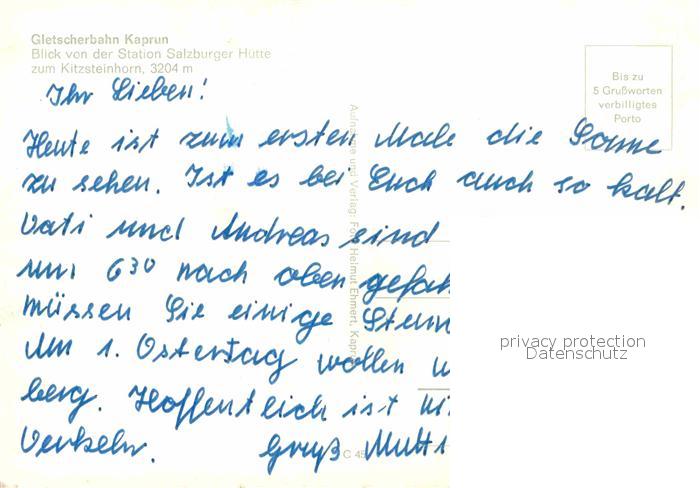 Gletscherbahn Kaprun
Blick von der Station Salzburger Hütte
zum Kitzsteinhorn, 3204 m
Bis zu
5 Grußworten
verbilligtes
Porto
Ihr Lieben!
Heute ist zum ersten Male die Sonne
zu sehen. Ist es bei Euch auch so kalt.
Vati und Andreas sind
um 6³⁰ nach oben gefah
müssen Sie einige Stun
Am 1. Ostertag wollen w
berg. Hoffentlich ist
Verkehr. Gruß Mutti
Aufnahme und Verlag: Foto Helmut Ehmert, Kaprun
C 45
privacy protection
Datenschutz